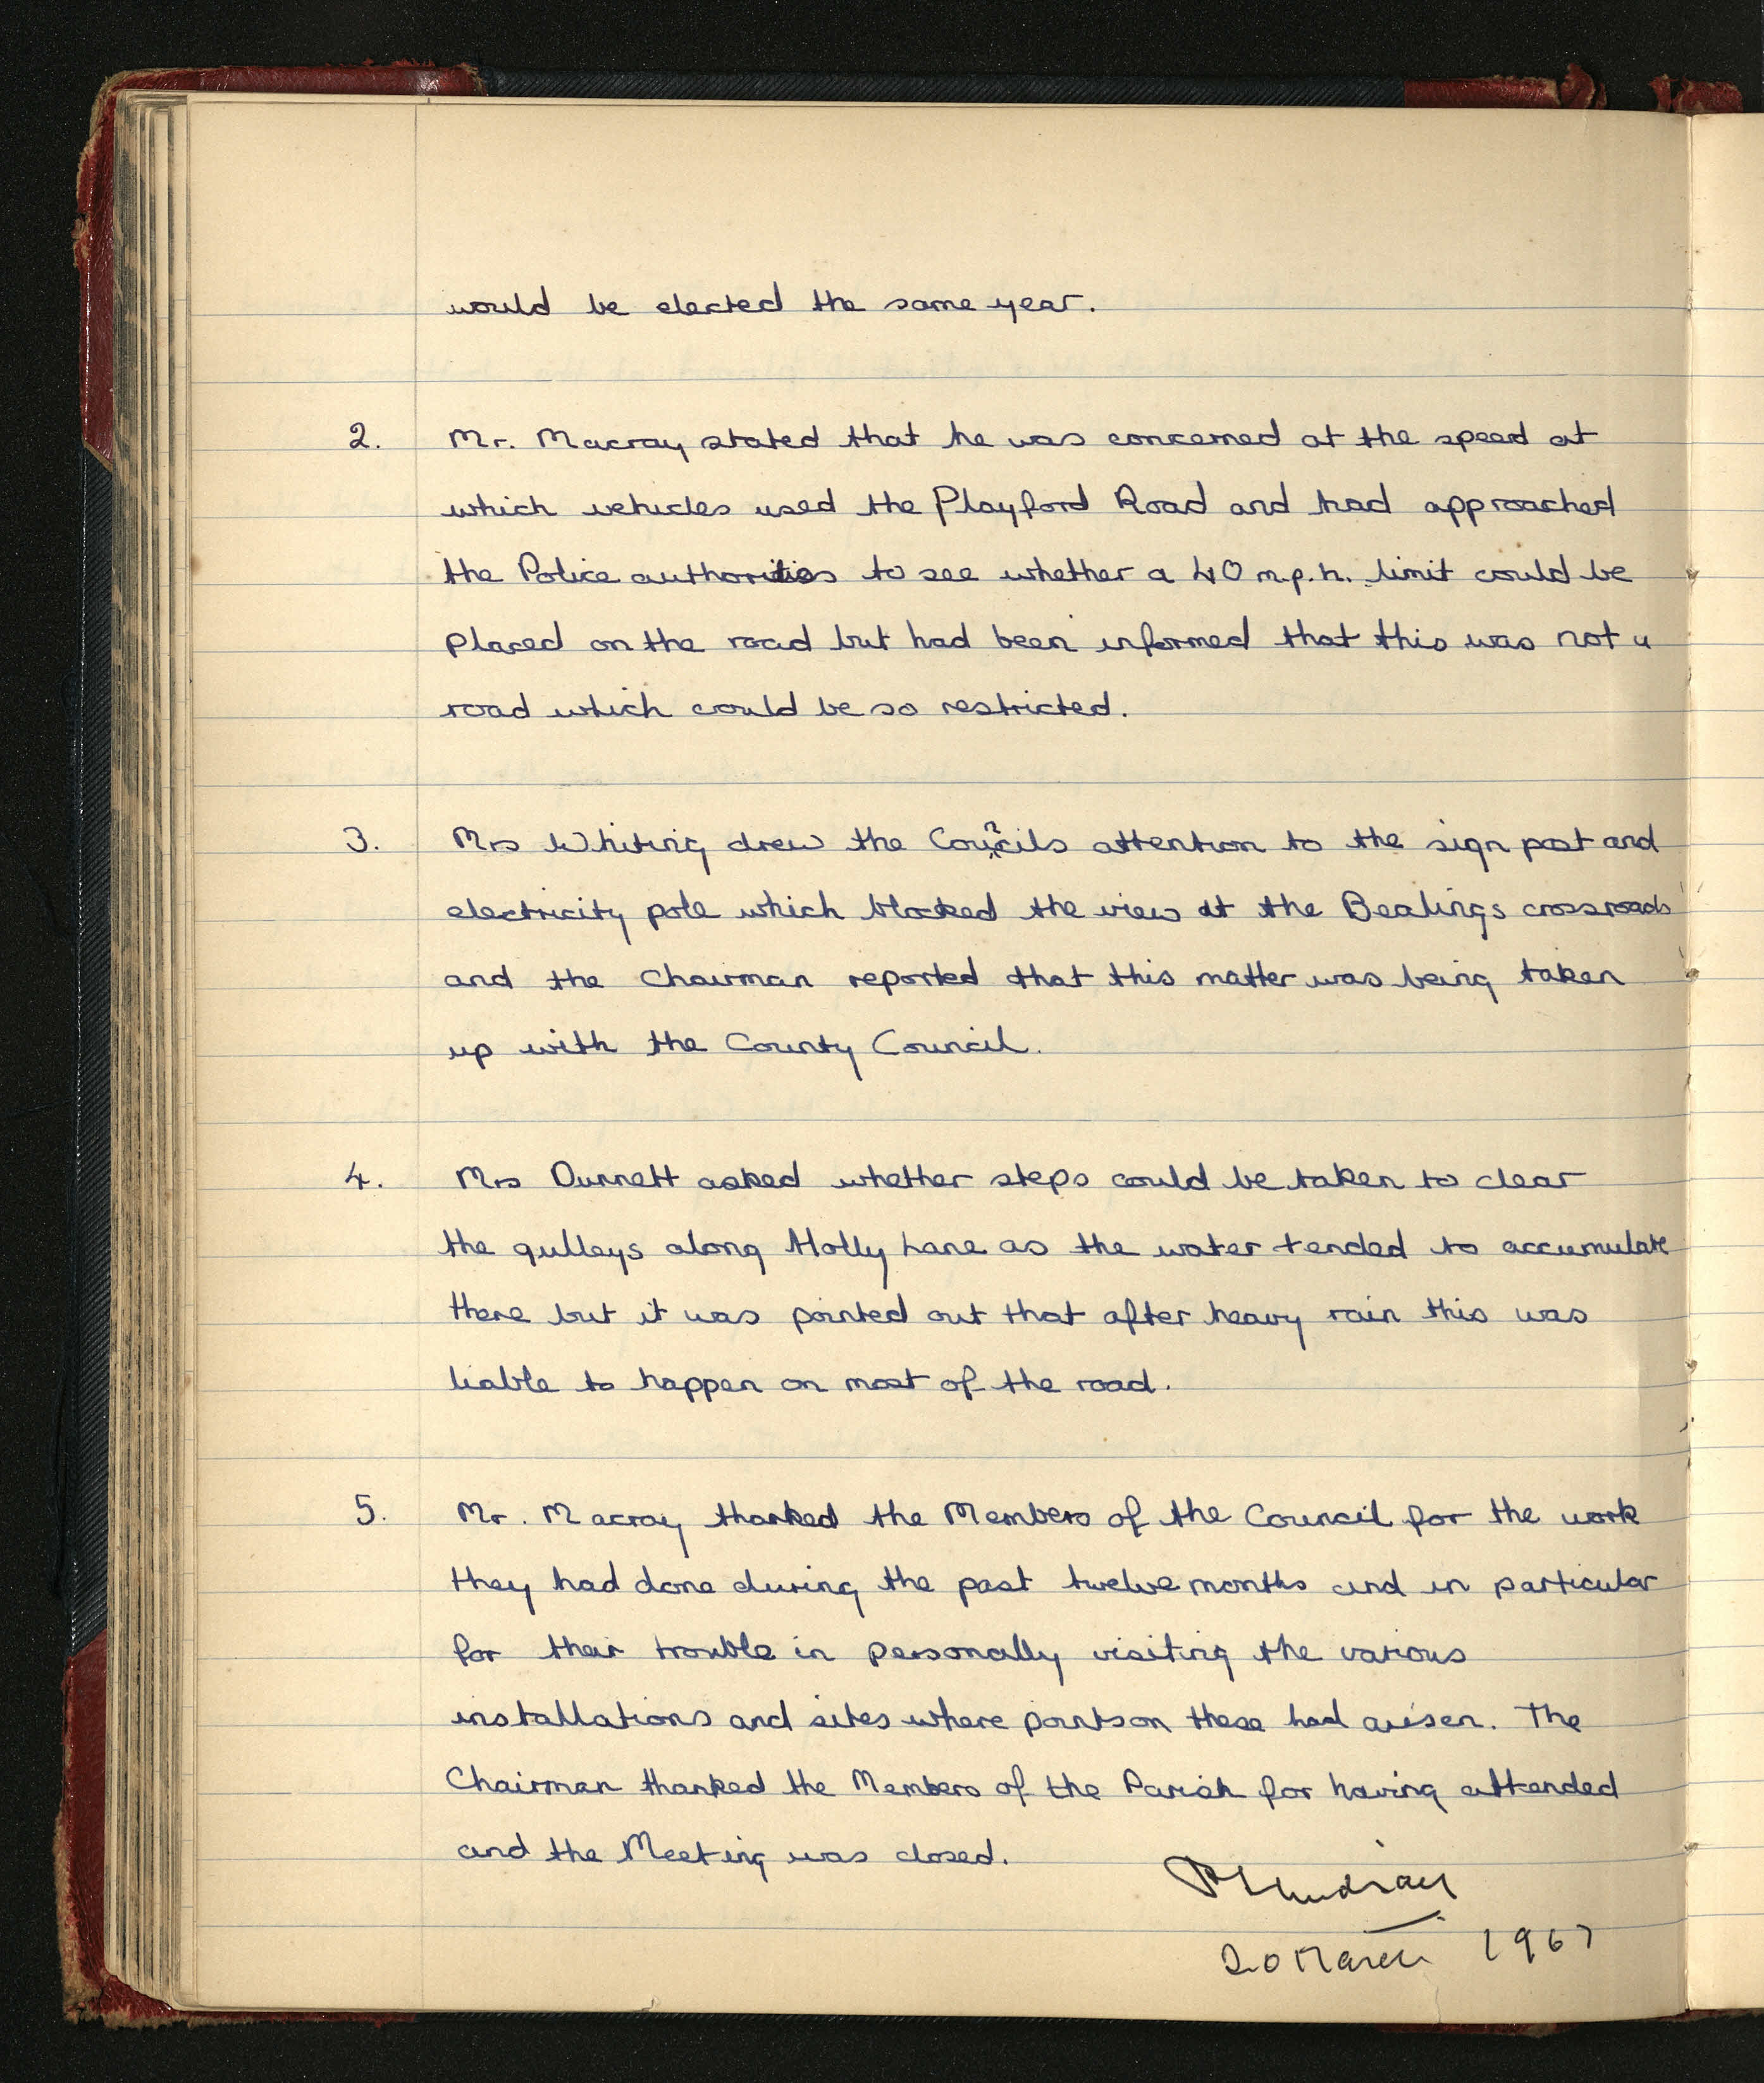 would be elected the same year.
2. Mr. Macray stated that he was concerned at the speed at
which vehicles used the Playford Road and had approached
the Police authorities to see whether a 40 m.p.h. limit could be
placed on the road but had been informed that this was not a
road which could be so restricted.
3. Mrs Whiting drew the Councils attention to the sign post and
electricity pole which blocked the view at the Bealings crossroads
and the Chairman reported that this matter was being taken
up with the County Council.
4. Mrs Durrett asked whether steps could be taken to clear
the gulleys along Holly Lane as the water tended to accumulate
there but it was pointed out that after heavy rain this was
liable to happen on most of the road.
5. Mr. Macray thanked the Members of the Council for the work
they had done during the past twelve months and in particular
for their trouble in personally visiting the various
installations and sites where points on these had arisen. The
Chairman thanked the Members of the Parish for having attended
and the Meeting was closed.
20 March 1967